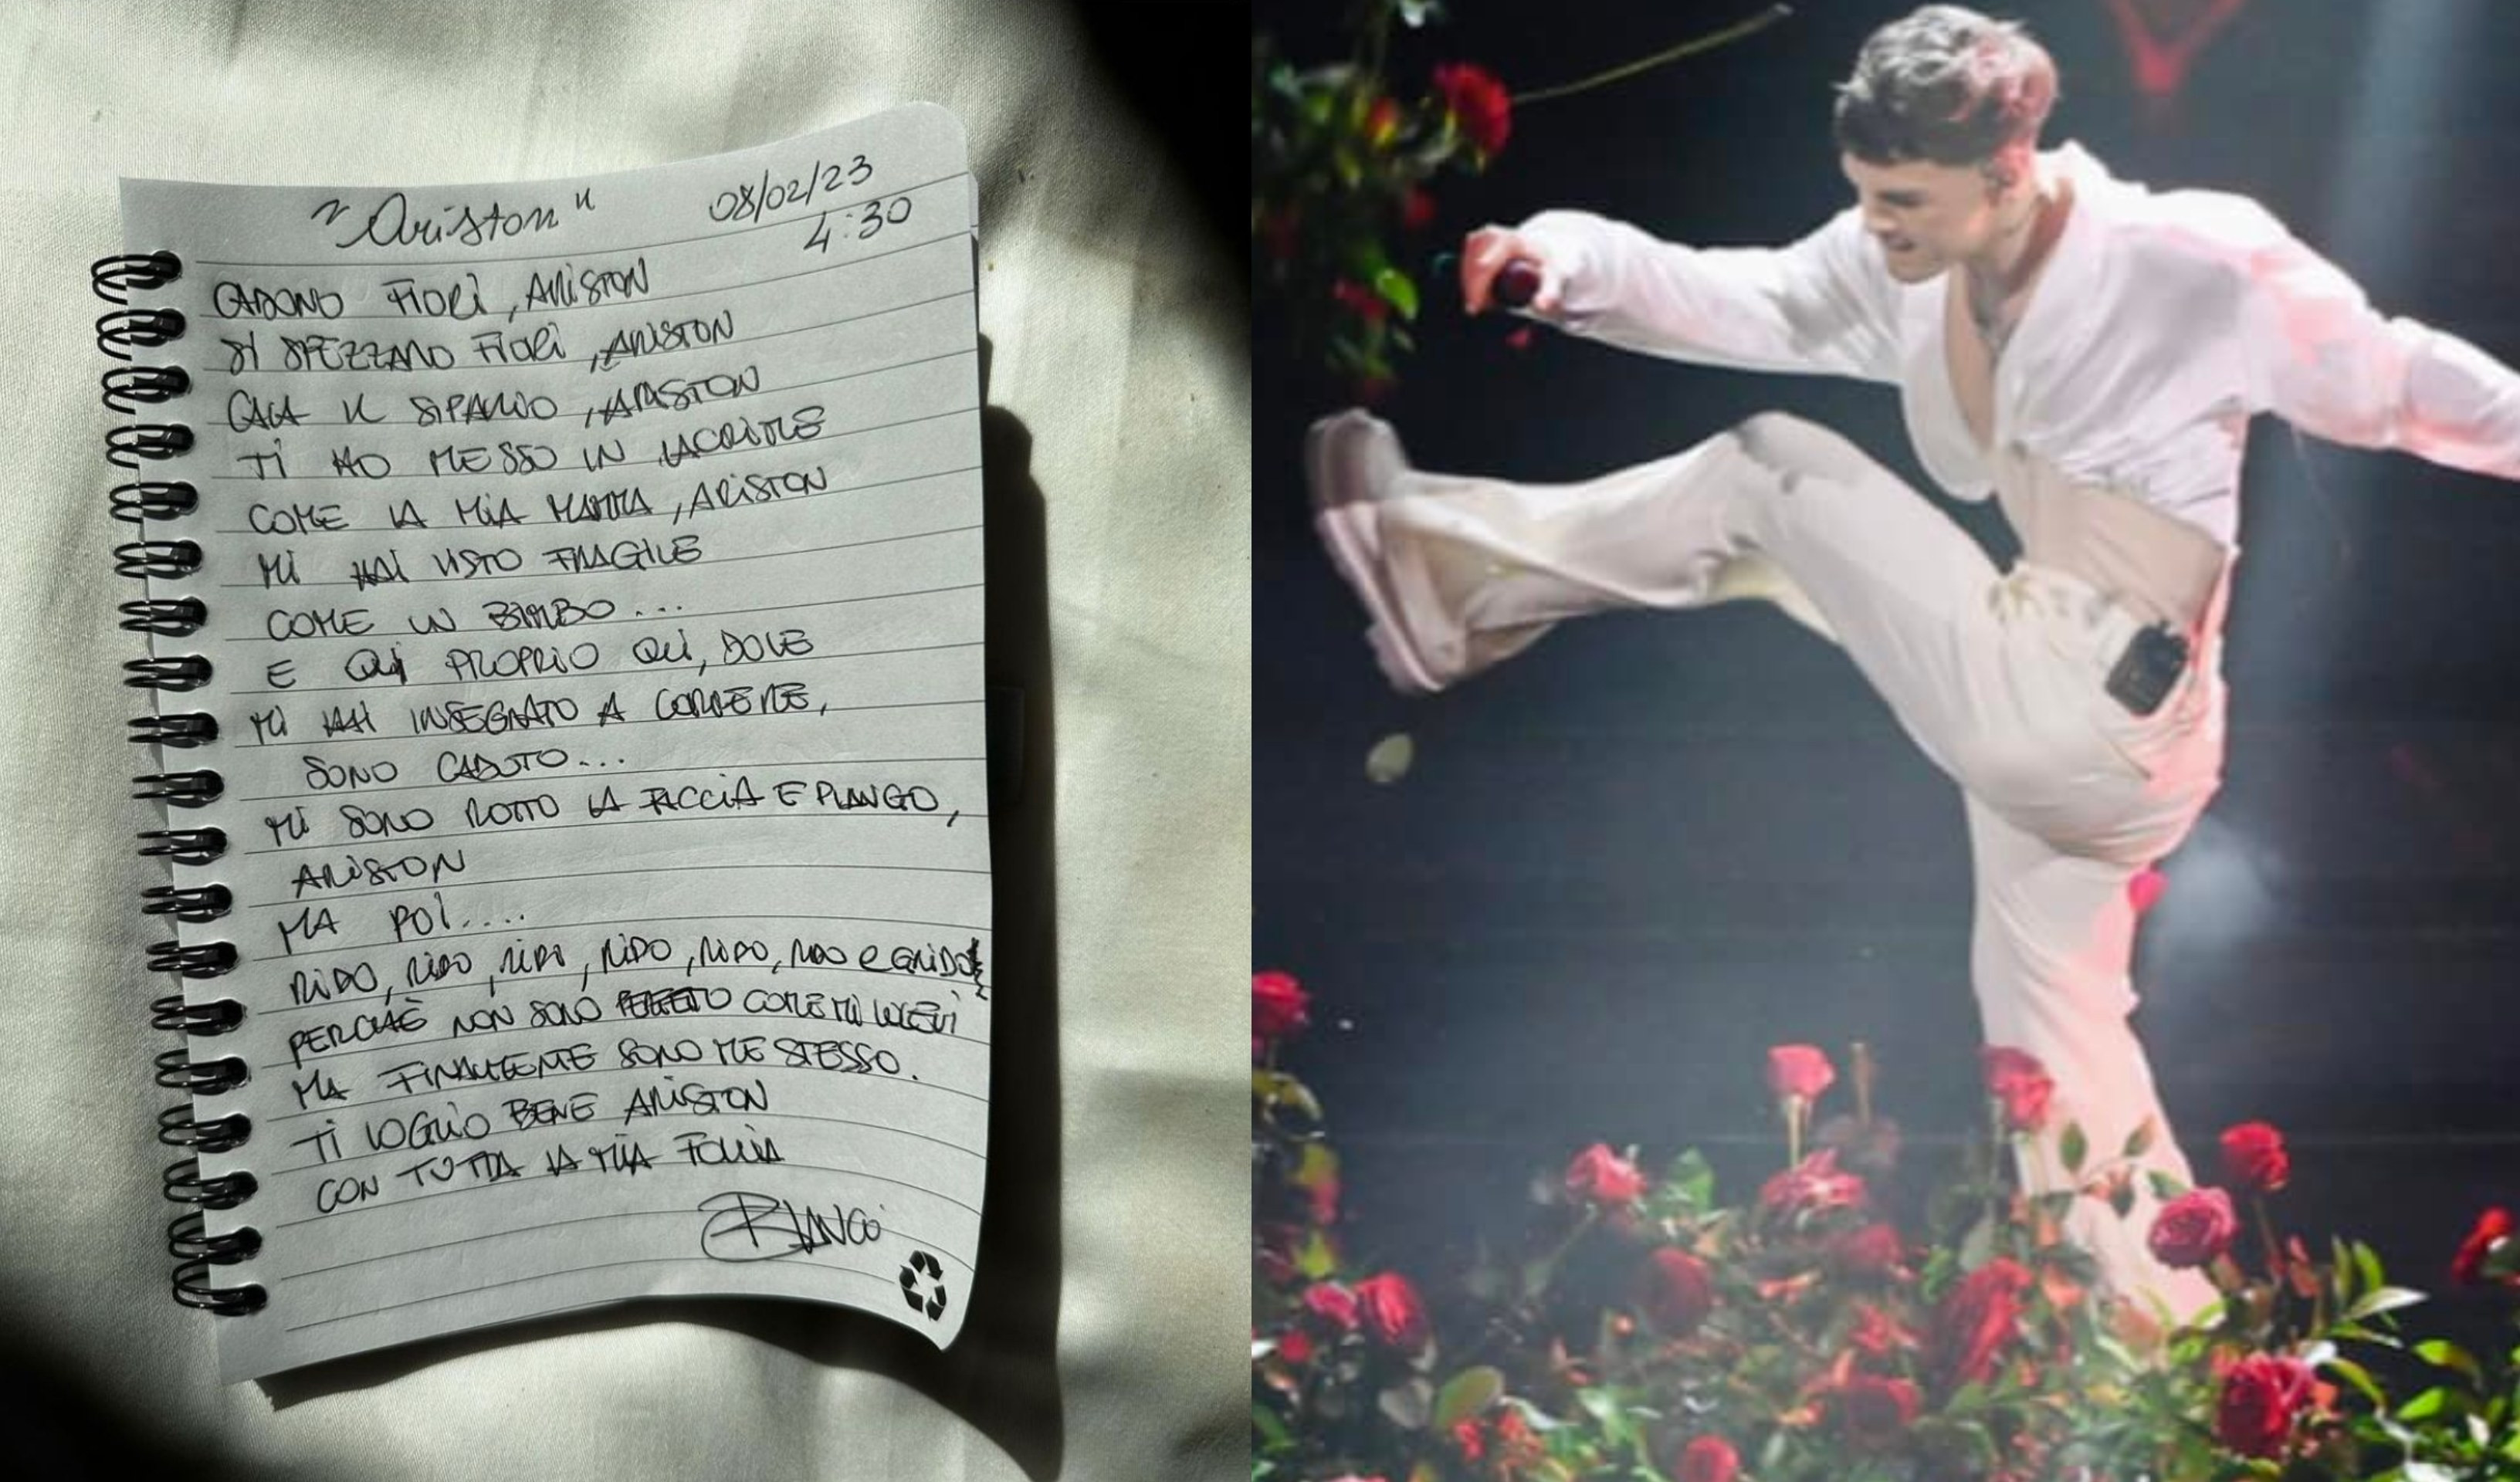 "Ariston" 08/02/23
4:30
CADONO FIORI, ARISTON
SI SPEZZANO FIORI, ARISTON
CALA IL SIPARIO, ARISTON
TI HO MESSO IN LACRIME
COME LA MIA MAMMA, ARISTON
MI HAI VISTO FRAGILE
COME UN BIMBO...
E QUI PROPRIO QUI, DOVE
MI HAI INSEGNATO A CORRERE,
SONO CADUTO...
MI SONO ROTTO LA FACCIA E PIANGO,
ARISTON
MA POI....
RIDO, RIDO, RIDO, RIDO, RIDO, RIDO e GRIDO
PERCHÈ NON SONO PERFETTO COME MI VOLEVI
MA FINALMENTE SONO ME STESSO.
TI VOGLIO BENE ARISTON
CON TUTTA LA MIA FOLLIA
BLANCO